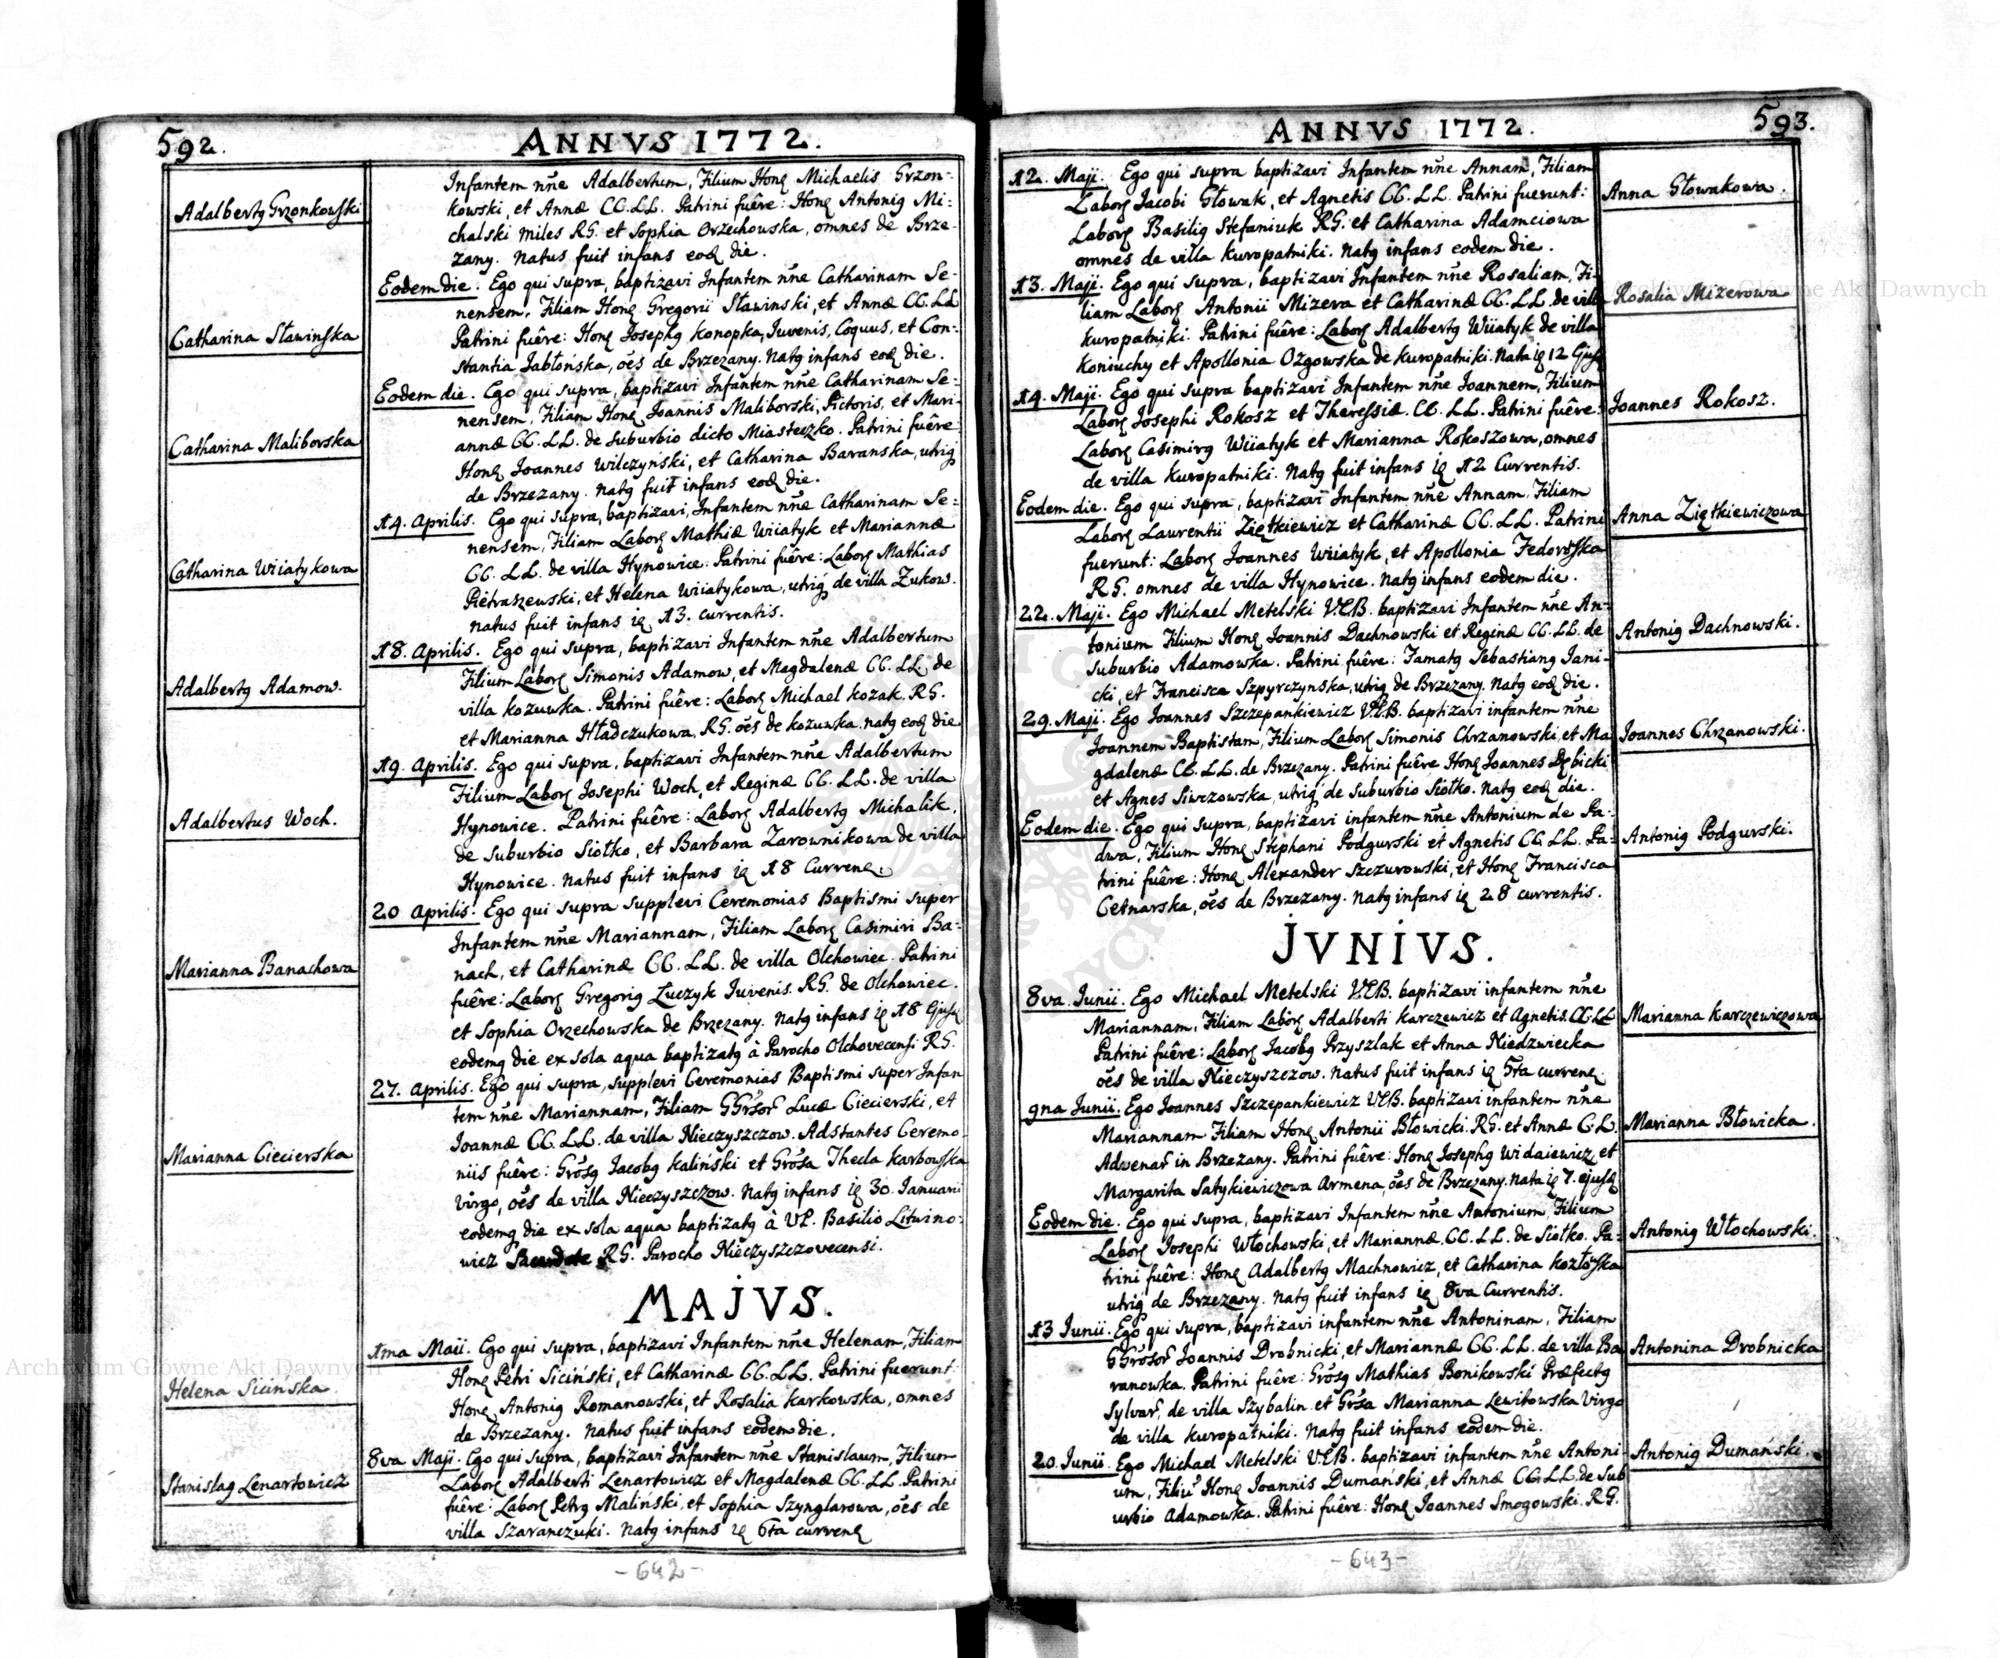 592.
ANNVS 1772.
Adalbertg Grzonkowski
Catharina Sławińska
Catharina Maliborska
Catharina Wiiatykowa
Adalbertg Adamow.
Adalbertus Woch.
Marianna Banachowa
Marianna Ciecierska
Helena Sicińska.
Stanislag Lenartowicz
Infantem nn̄e Adalbertum, Filium Honę Michaelis Grzon-
kowski, et Annæ CC. LL. Patrini fuêre: Honę Antonig Mi-
chalski miles RG. et Sophia Orzechowska, omnes de Brze-
zany. Natus fuit infans eođ die.
Eodem die. Ego qui supra, baptizavi Infantem nn̄e Catharinam Se-
nensem, Filiam Honę Gregorii Sławinski, et Annæ CC. LL
Patrini fuêre: Honę Josephg Konopka, Iuvenis, Coquus, et Con-
stantia Jabłońska, oēs de Brzezany. Natg infans eođ die.
Eodem die. Ego qui supra, baptizavi Infantem nn̄e Catharinam Se-
nensem, Filiam Honę Joannis Maliborski, Pictoris, et Mari-
annæ CC. LL. de suburbio dicto Miasteczko. Patrini fuêre
Honę Joannes Wilczyński, et Catharina Baranska, utrig
de Brzezany. Natg fuit infans eođ die.
14. Aprilis. Ego qui supra, baptizavi, Infantem nn̄e Catharinam Se-
nensem, Filiam Laborę Mathiæ Wiiatyk et Mariannæ
CC. LL. de villa Hynowice. Patrini fuêre: Laborę Mathias
Pietraszewski, et Helena Wiiatykowa, utrig de villa Zukow.
Natus fuit infans ię 13. currentis.
18. Aprilis. Ego qui supra, baptizavi Infantem nn̄e Adalbertum
Filium Laborę Simonis Adamow, et Magdalenæ CC. LL. de
villa Kozuwka. Patrini fuêre: Laborę Michael Kozak. RG.
et Marianna Hładczukowa, RG. oēs de Kozuwka. Natg eođ die
19. Aprilis. Ego qui supra, baptizavi Infantem nn̄e Adalbertum
Filium Laborę Josephi Woch, et Reginæ CC. LL. de villa
Hynowice. Patrini fuêre: Laborę Adalbertg Michalik,
de Suburbio Siołko, et Barbara Zarownikowa de villa
Hynowice. Natus fuit infans ię 18 Currenę.
20 Aprilis. Ego qui supra supplevi Ceremonias Baptismi super
Infantem nn̄e Mariannam, Filiam Laborę Casimiri Ba-
nach, et Catharinæ CC. LL. de villa Olchowiec. Patrini
fuêre: Laborę Gregorig Łuczyk Iuvenis. RG. de Olchowiec.
et Sophia Orzechowska de Brzezany. Natg infans ię 18 Ejusđ
eodemg die ex sola aqua baptizatg à Parocho Olchovecensi RG.
27. Aprilis. Ego qui supra, supplevi Ceremonias Baptismi super Infan
tem nn̄e Mariannam, Filiam GGrosor̄ Lucæ Ciecierski, et
Joannæ CC. LL. de villa Nieczyszczow. Adstantes Ceremo
niis fuêre: Grōsg Jacobg Kaliński et Grōsa Thecla Karbowska
Virgo, oēs de villa Nieczyszczow. Natg infans ię 30. Januarii
eodemg die ex sola aqua baptizatg à VP. Basilio Litwino-
wicz RG. Parocho Nieczyszczovecensi.
MAJVS.
1ma Maii. Ego qui supra, baptizavi Infantem nn̄e Helenam, Filiam
Honę Petri Siciński, et Catharinæ CC. LL. Patrini fuerunt:
Honę Antonig Romanowski, et Rosalia Karkowska, omnes
de Brzezany. Natus fuit infans eodem die.
8va Maji. Ego qui supra, baptizavi Infantem nn̄e Stanislaum, Filium
Laborę Adalberti Lenartowicz et Magdalenæ CC. LL. Patrini
fuêre: Laborę Petrg Maliński, et Sophia Szynglarowa, oēs de
villa Szaranczuki. Natg infans ię 6ta currenę
-642-
593.
ANNVS 1772.
12. Maji. Ego qui supra baptizavi Infantem nn̄e Annam, Filiam
Laborę Jacobi Głowak, et Agnetis CC. LL. Patrini fuerunt:
Laborę Basilig Stefaniuk RG. et Catharina Adamciowa
omnes de villa Kuropatniki. Natg infans eodem die.
13. Maji. Ego qui supra, baptizavi Infantem nn̄e Rosaliam, Fi-
liam Laborę Antonii Mizera et Catharinæ CC. LL. de villa
Kuropatniki. Patrini fuêre: Laborę Adalbertg Wiiatyk de villa
Koniuchy et Apollonia Ozgowska de Kuropatniki. Nata ię 12 Ejusđ
14. Maji. Ego qui supra baptizavi Infantem nn̄e Joannem, Filium
Laborę Josephi Rokosz et Theressiæ. CC. LL. Patrini fuêre:
Laborę Casimirg Wiiatyk et Marianna Rokoszowa, omnes
de villa Kuropatniki. Natg fuit infans ię 12 Currentis.
Eodem die. Ego qui supra, baptizavi Infantem nn̄e Annam, Filiam
Laborę Laurentii Ziętkiewicz et Catharinæ CC. LL. Patrini
fuerunt: Laborę Joannes Wiiatyk, et Apollonia Fedorosska
RG. omnes de villa Hynowice. Natg infans eodem die.
22. Maji. Ego Michael Metelski V.C.B. baptizavi Infantem nn̄e An-
tonium Filium Honę Joannis Dachnowski et Reginæ CC. LL. de
Suburbio Adamowka. Patrini fuêre: Famatg Sebastiang Jani-
cki, et Francisca Szpyrczynska, utrig de Brzezany. Natg eođ die.
29. Maji. Ego Joannes Szczepankiewicz V.C.B. baptizavi infantem nn̄e
Joannem Baptistam, Filium Laborę Simonis Chrzanowski, et Ma
gdalenæ CC. LL. de Brzezany. Patrini fuêre Honę Joannes Dębicki
et Agnes Siwczowska, utrig de suburbio Siołko. Natg eođ die.
Eodem die. Ego qui supra, baptizavi infantem nn̄e Antonium de Pa-
dwa, Filium Honę Stephani Podgurski et Agnetis CC. LL. Pa-
trini fuêre: Honę Alexander Szczurowski, et Honę Francisca
Cetnarska, oēs de Brzezany. Natg infans ię 28 currentis.
JVNIVS.
8va. Iunii. Ego Michael Metelski V.C.B. baptizavi infantem nn̄e
Mariannam, Filiam Laborę Adalberti Karczewicz et Agnetis. CC. LL
Patrini fuêre: Laborę Jacobg Przyszlak et Anna Niedzwiecka
oēs de villa Nieczyszczow. Natus fuit infans ię 5ta currenę.
9na Junii. Ego Joannes Szczepankiewicz V.C.B. baptizavi infantem nn̄e
Mariannam Filiam Honę Antonii Błowicki. RG. et Annæ C.L.
Advenar̄ in Brzezany. Patrini fuêre: Honę Josephg Widaiewicz et
Margarita Satykiewiczowa Armena, oēs de Brzezany. Nata ię 7. ejusđ
Eodem die. Ego qui supra, baptizavi Infantem nn̄e Antonium, Filium
Laborę Josephi Włochowski, et Mariannæ CC. LL. de Siołko. Pa-
trini fuêre: Honę Adalbertg Machnowicz, et Catharina Kozłoska
utrig de Brzezany. Natg fuit infans ię 8va Currentis.
13 Iunii. Ego qui supra, baptizavi infantem nn̄e Antoninam, Filiam
GGrōsor̄ Joannis Drobnicki, et Mariannæ CC. LL. de villa Ba
ranowska. Patrini fuêre: Grōsg Mathias Bonikowski Præfectg
Sylvar̄, de villa Szybalin et Grōsa Marianna Lewitowska Virgo
de villa Kuropatniki. Natg fuit infans eodem die.
20. Iunii. Ego Michael Metelski V.C.B. baptizavi infantem nn̄e Antoni-
um, Filiū Honę Joannis Dumański, et Annæ CC. LL. de Sub
urbio Adamowka. Patrini fuêre: Honę Joannes Smogowski. RG.
Anna Głowakowa.
Rosalia Mizerowa
Joannes Rokosz.
Anna Ziętkiewiczowa
Antonig Dachnowski.
Joannes Chrzanowski.
Antonig Podgurski.
Marianna Karczewiczowa
Marianna Błowicka.
Antonig Włochowski.
Antonina Drobnicka
Antonig Dumański.
-643-
Archiwum Główne Akt Dawnych
Archiwum Główne Akt Dawnych